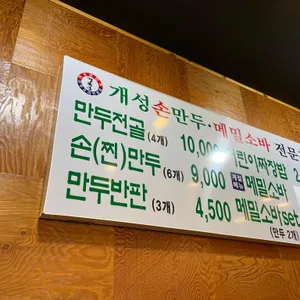 개성손만두·메밀소바 전문
만두전골(4개) 10,000 어린이짜장밥 2
손(찐)만두(6개) 9,000 메밀소바
만두반판(3개) 4,500 메밀소바set
(만두 2개)